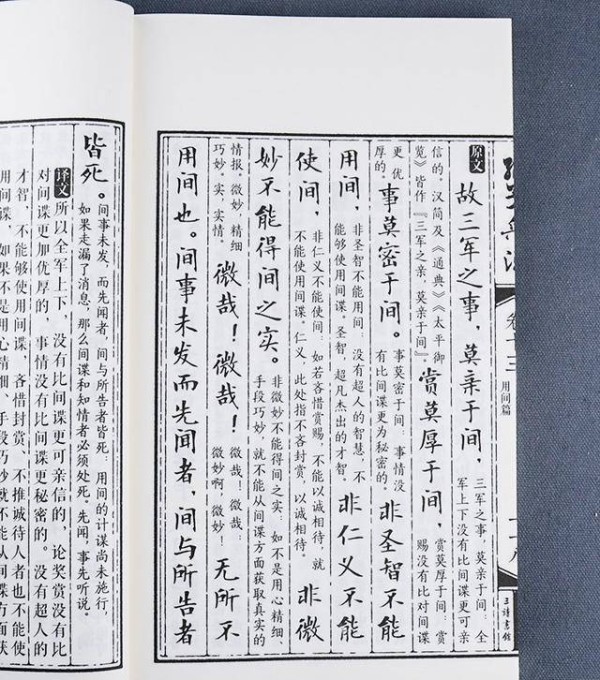 卷十三 用间篇
原文 故三军之事,莫亲于间,
三军之事,莫亲于间:全
军上下没有比间谍更可亲
信的,汉简及《通典》《太平御
览》皆作『三军之亲,莫亲于间』。
赏莫厚于间,
赏莫厚于间:赏
赐没有比对间谍
更优
厚的。
事莫密于间。
事莫密于间:事情没
有比间谍更为秘密的。
非圣智不能
用间,
非圣智不能用间:没有超人的智慧,不
能够使用间谍。圣智,超凡杰出的才智。
非仁义不能
使间,
非仁义不能使间:如若吝惜赏赐,不能以诚相待,就
不能使用间谍。仁义,此处指不吝封赏、以诚相待。
非微
妙不能得间之实。
非微妙不能得间之实:如不是用心精细、
手段巧妙,就不能从间谍方面获取真实的
情报。微妙,精细
巧妙。实,实情。
微哉!微哉!
微哉!微哉:
微妙啊,微妙!
无所不
用间也。间事未发而先闻者,间与所告者
皆死。
间事未发,而先闻者,间与所告者皆死:用间的计谋尚未施行,
如果走漏了消息,那么间谍和知情者必须处死。先闻,事先听说。
译文 所以全军上下,没有比间谍更可亲信的,论奖赏没有比
对间谍更加优厚的,事情没有比间谍更秘密的。没有超人的
才智,不能够使用间谍,吝惜封赏、不推诚待人者也不能使
用间谍,如果不是用心精细、手段巧妙就不能从间谍方面获